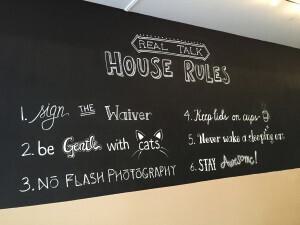 REAL TALK
HOUSE RULES
1. sign THE Waiver
2. be Gentle with cats
3. NO FLASH PHOTOGRAPHY
4. Keep lids on cups
5. Never wake a sleeping cat.
6. STAY Awesome!